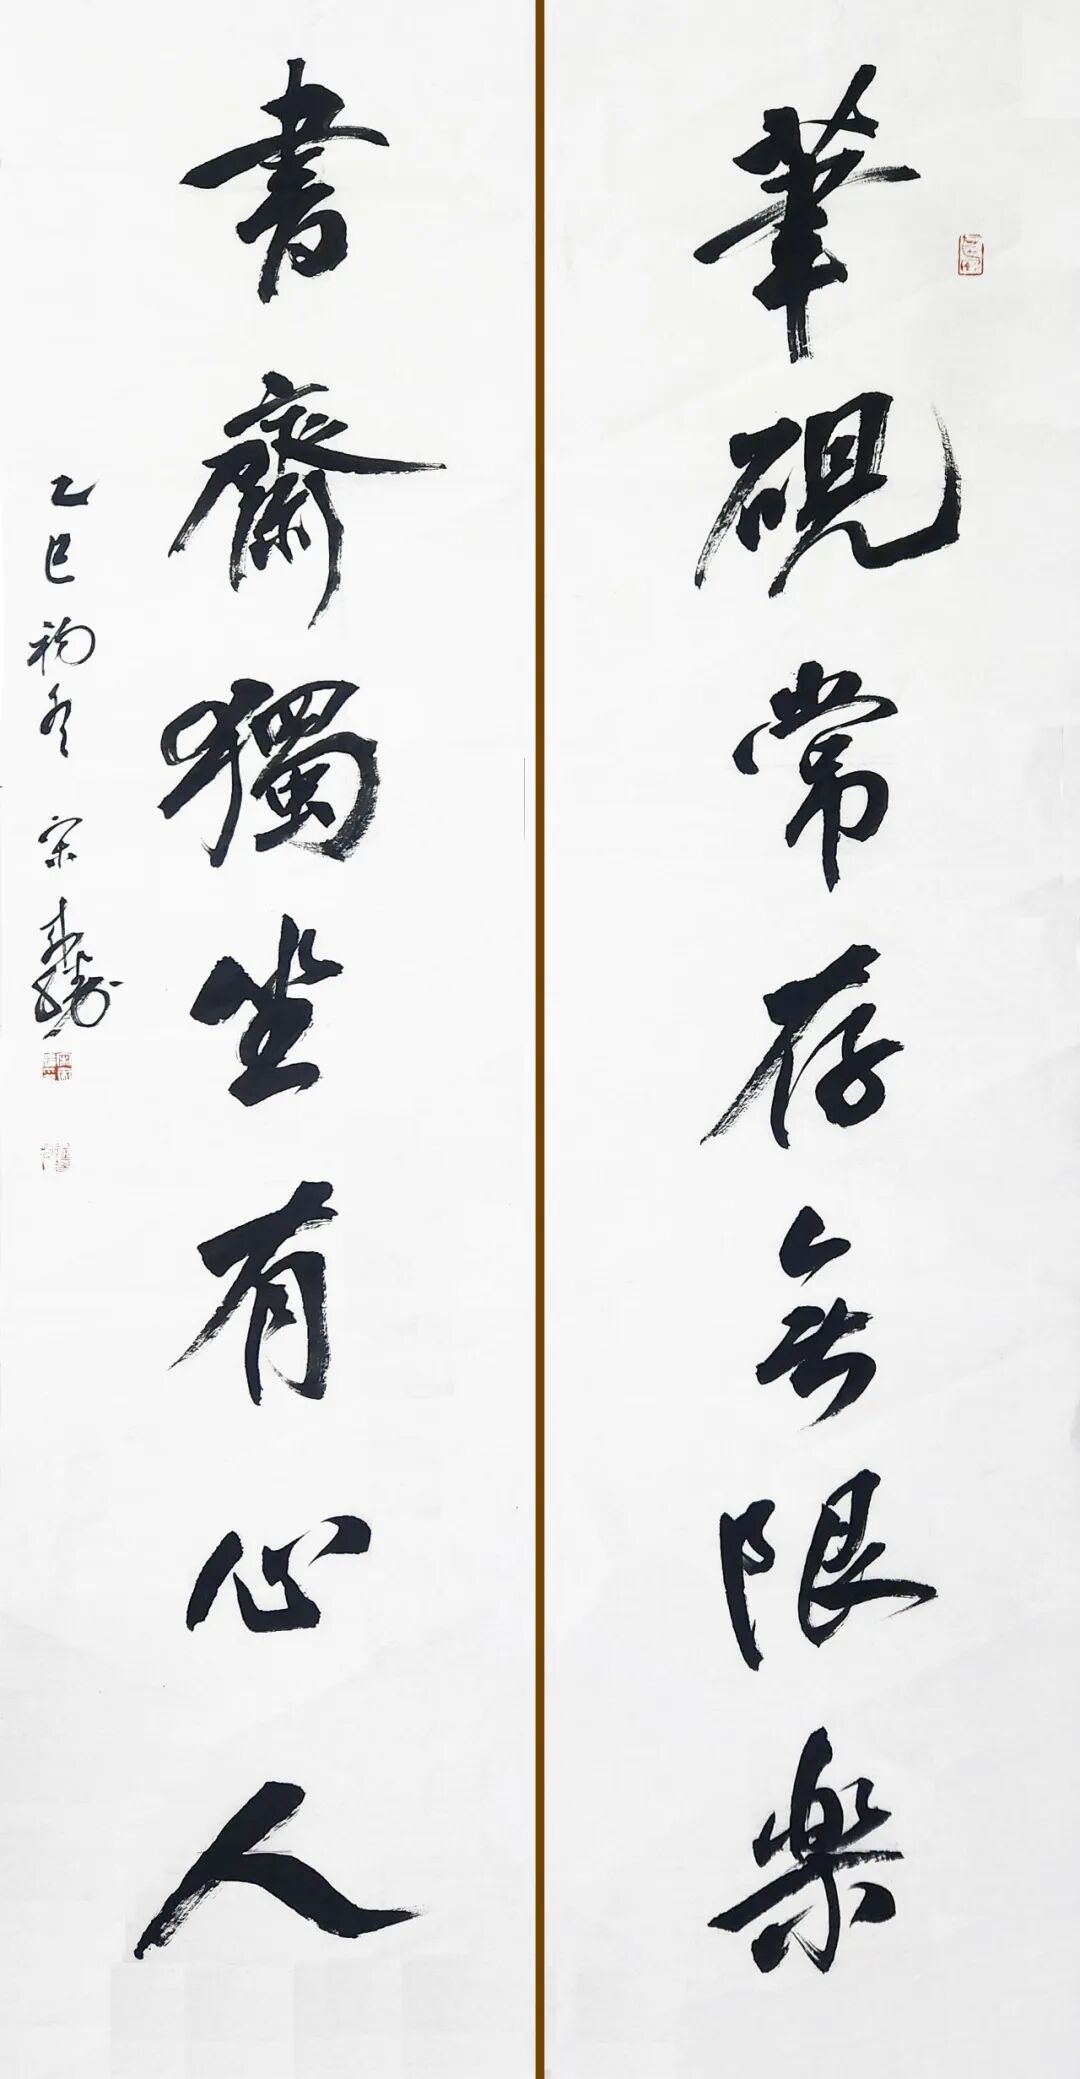 筆硯常存無限樂
書齋獨坐有心人
乙巳初冬 宋